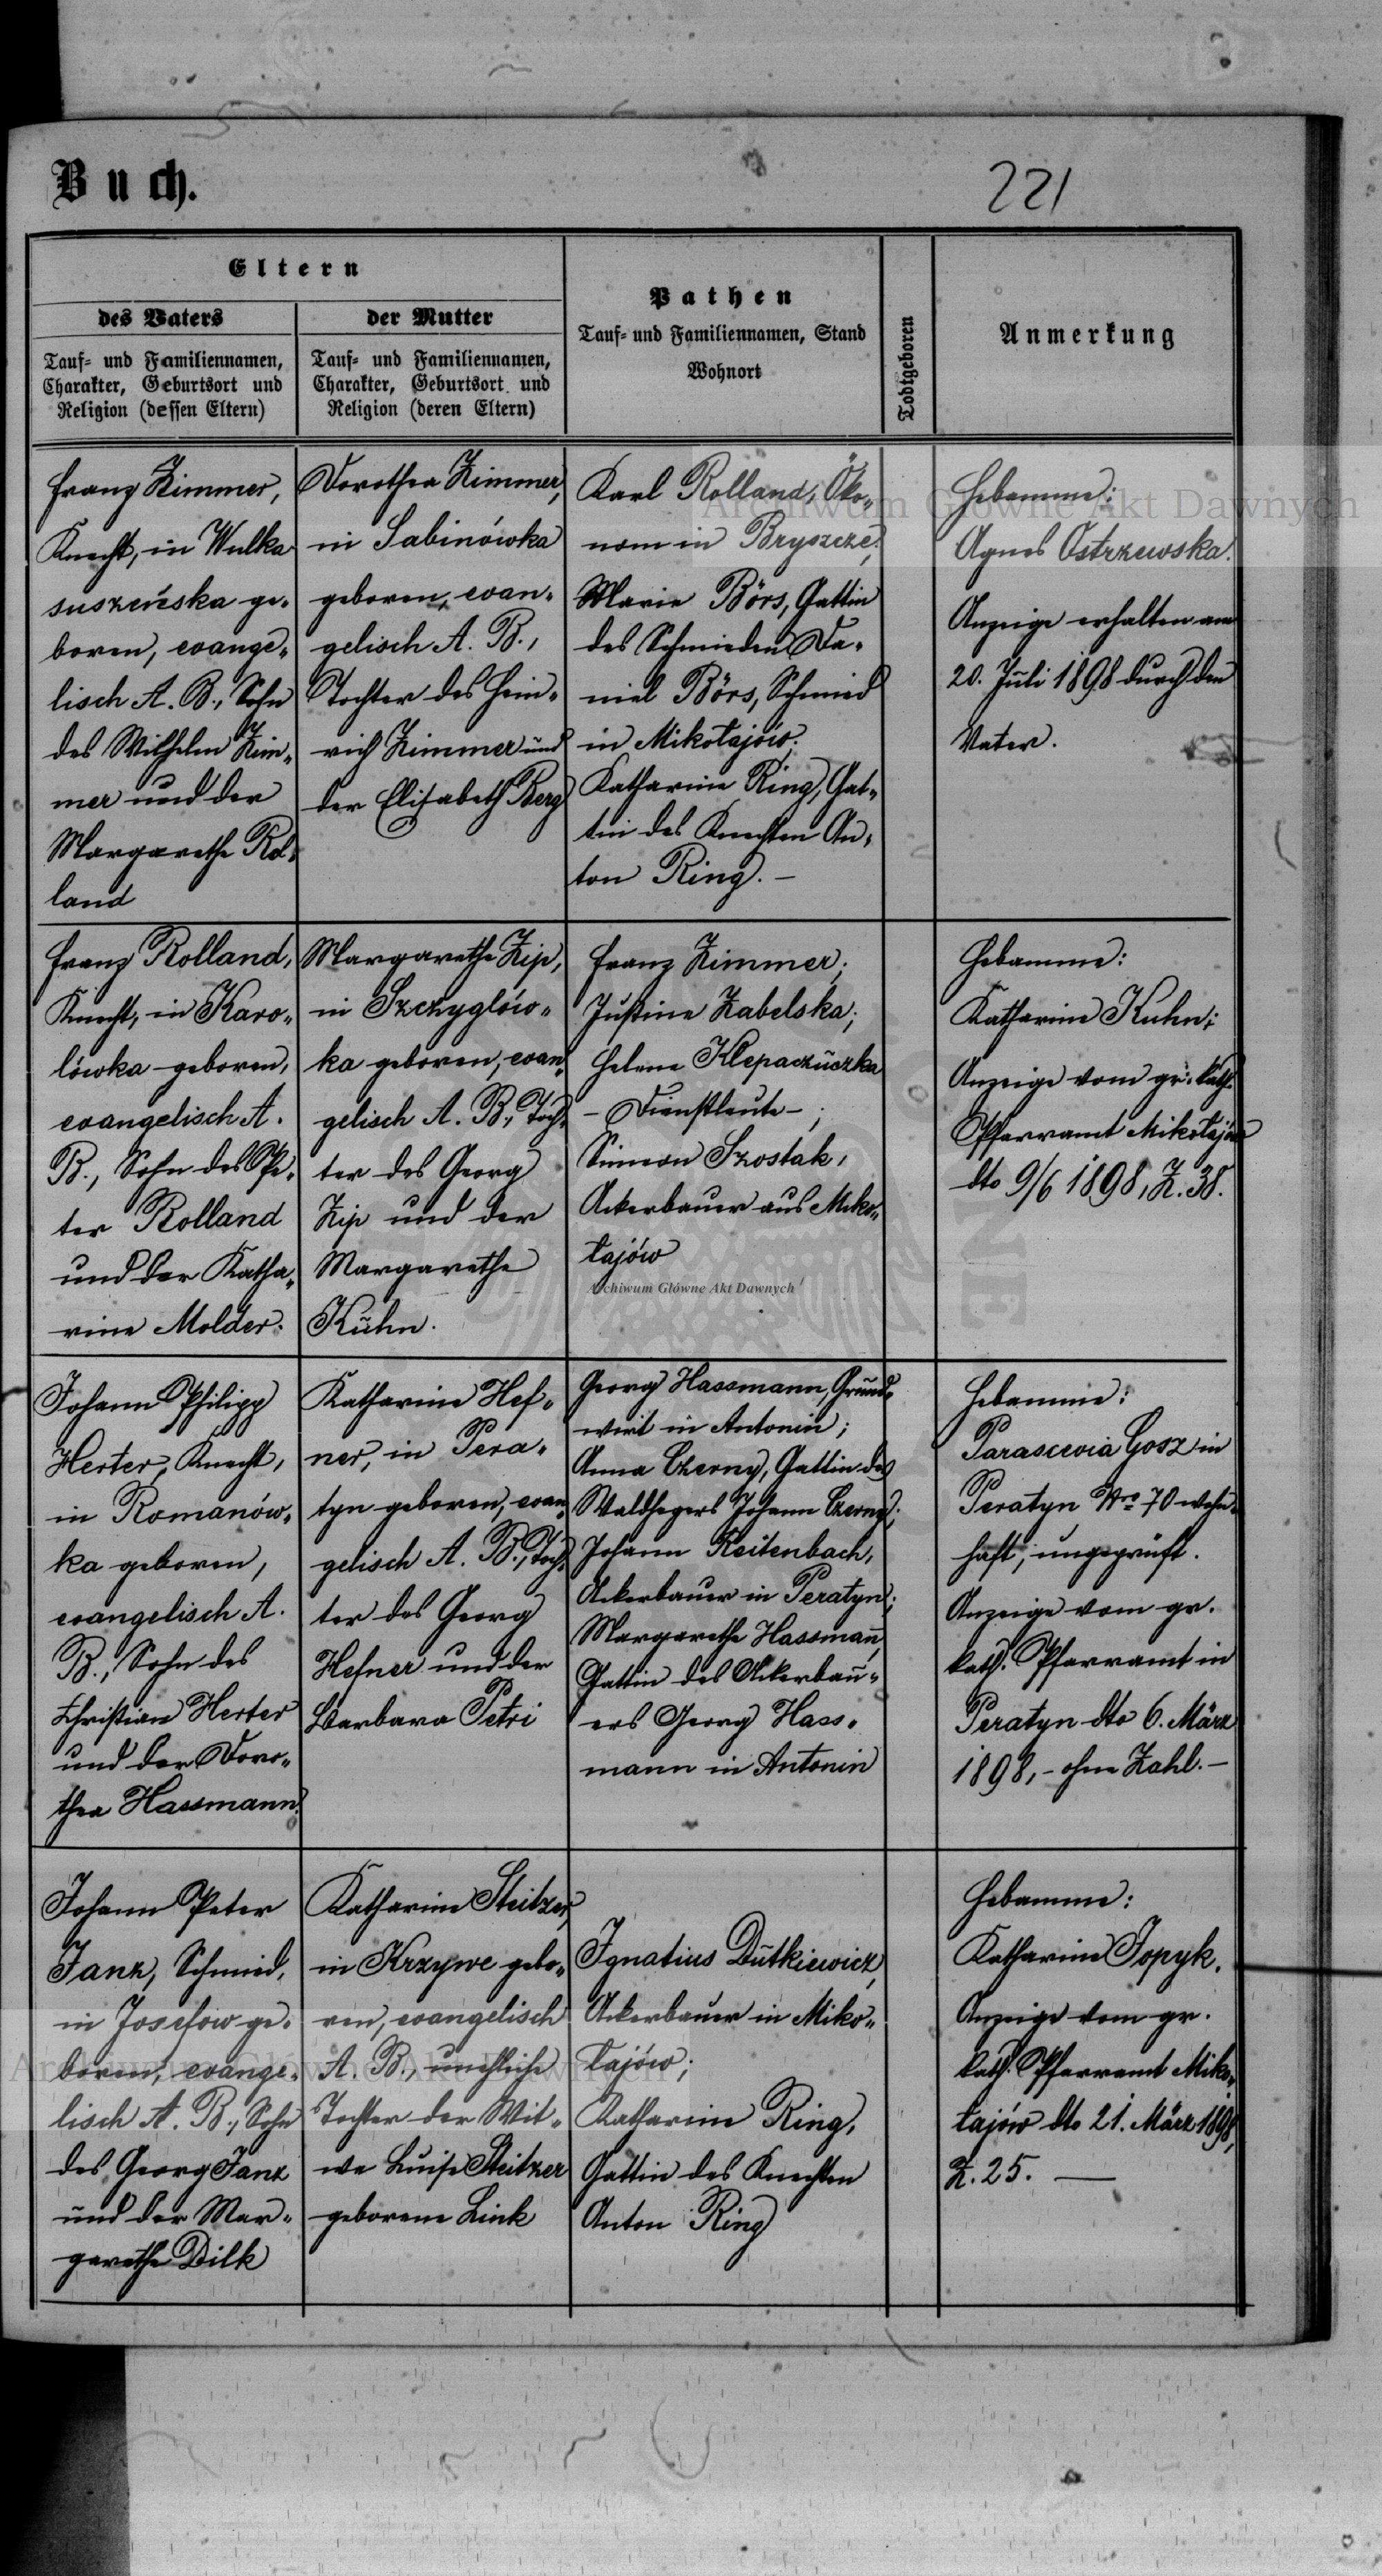 Buch.
221
Eltern
des Vaters
Tauf- und Familiennamen,
Charakter, Geburtsort und
Religion (dessen Eltern)
der Mutter
Tauf- und Familiennamen,
Charakter, Geburtsort und
Religion (deren Eltern)
Pathen
Tauf- und Familiennamen, Stand
Wohnort
Todtgeboren
Anmerkung
Franz Zimmer,
Knecht, in Wulka
suszeńska ge-
boren, evange-
lisch A. B., Sohn
des Wilhelm Zim-
mer und der
Margarethe Rol-
land
Dorothea Zimmer,
in Sabinówka
geboren, evan-
gelisch A. B.,
Tochter des Hein-
rich Zimmer und
der Elisabeth Berg
Karl Rolland, Öko-
nom in Bryszcze;
Marie Börs, Gattin
des Schmieden Da-
niel Börs, Schmied
in Mikołajów;
Katharine Ring, Gat-
tin des Knechten An-
ton Ring. —
Hebamme:
Agnes Ostrzewska.
Anzeige erhalten am
20. Juli 1898 durch den
Vater.
Franz Rolland,
Knecht, in Karo-
lówka geboren,
evangelisch A.
B., Sohn des Pe-
ter Rolland
und der Katha-
rine Molder.
Margarethe Zip,
in Szczyglów-
ka geboren, evan-
gelisch A. B., Toch-
ter des Georg
Zip und der
Margarethe
Kuhn.
Franz Zimmer;
Justine Zabelska;
Helene Klepaczuczka
- Dienstleute - ;
Simeon Szostak,
Ackerbauer aus Miko-
łajów
Hebamme:
Katharine Kuhn;
Anzeige vom gr. kath.
Pfarramt Mikołajów
dto 9/6 1898, Z. 38.
Johann Philipp
Herter, Knecht,
in Romanów-
ka geboren,
evangelisch A.
B., Sohn des
Christian Herter
und der Doro-
thea Hassmann.
Katharine Hef-
ner, in Pera-
tyn geboren, evan-
gelisch A. B., Toch-
ter des Georg
Hefner und der
Barbara Petri
Georg Hassmann, Grund-
wirt in Antonin;
Anna Czerny, Gattin des
Waldhegers Johann Czerny;
Johann Reitenbach,
Ackerbauer in Peratyn;
Margarethe Hassmann,
Gattin des Ackerbau-
ers Georg Hass-
mann in Antonin
Hebamme:
Parascevia Gosz in
Peratyn Nro 70 wohn-
haft, ungeprüft.
Anzeige vom gr.
kath. Pfarramt in
Peratyn dto 6. März
1898, - ohne Zahl. —
Johann Peter
Janz, Schmied,
in Josefow ge-
boren, evange-
lisch A. B., Sohn
des Georg Janz
und der Mar-
garethe Dilk
Katharine Steitzer,
in Krzywe gebo-
ren, evangelisch
A. B., uneheliche
Tochter der Wit-
we Luise Steitzer
geborene Link
Ignatius Dutkiewicz,
Ackerbauer in Miko-
łajów;
Katharine Ring,
Gattin des Knechten
Anton Ring
Hebamme:
Katharine Jopyk.
Anzeige vom gr.
kath. Pfarramt Miko-
łajów dto 21. März 1898,
Z. 25. —
Archiwum Główne Akt Dawnych
Archiwum Główne Akt Dawnych
Archiwum Główne Akt Dawnych